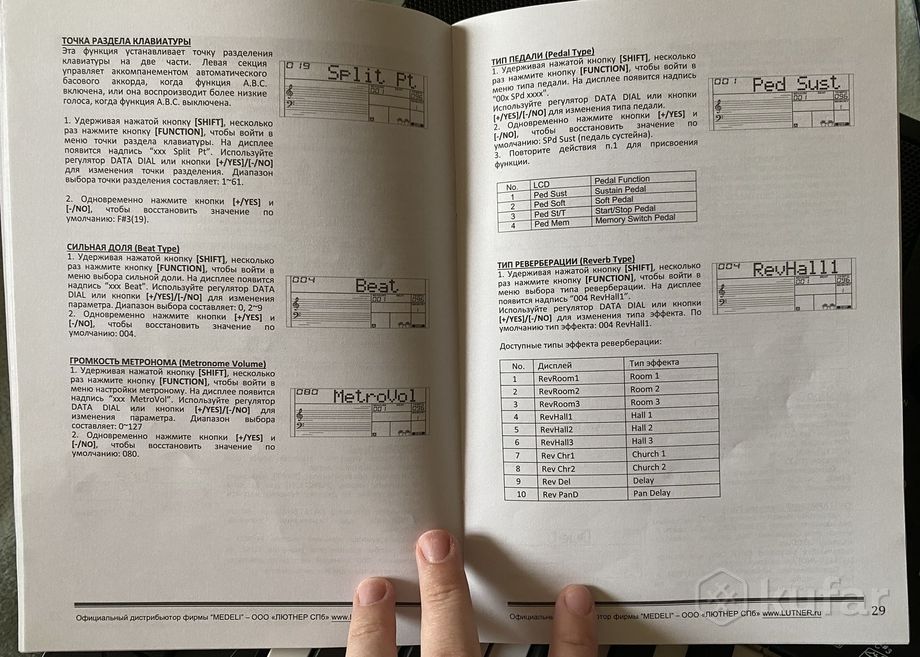 ТОЧКА РАЗДЕЛА КЛАВИАТУРЫ
Эта функция устанавливает точку разделения
клавиатуры на две части. Левая секция
управляет аккомпанементом автоматического
басового аккорда, когда функция A.B.C.
включена, или она воспроизводит более низкие
голоса, когда функция A.B.C. выключена.
1. Удерживая нажатой кнопку [SHIFT], несколько
раз нажмите кнопку [FUNCTION], чтобы войти в
меню точки раздела клавиатуры. На дисплее
появится надпись "xxx Split Pt". Используйте
регулятор DATA DIAL или кнопки [+/YES]/[-/NO]
для изменения точки разделения. Диапазон
выбора точки разделения составляет: 1~61.
2. Одновременно нажмите кнопки [+/YES] и
[-/NO], чтобы восстановить значение по
умолчанию: F#3(19).
019
Split Pt
001
096
СИЛЬНАЯ ДОЛЯ (Beat Type)
1. Удерживая нажатой кнопку [SHIFT], несколько
раз нажмите кнопку [FUNCTION], чтобы войти в
меню выбора сильной доли. На дисплее появится
надпись "xxx Beat". Используйте регулятор DATA
DIAL или кнопки [+/YES]/[-/NO] для изменения
параметра. Диапазон выбора составляет: 0, 2~9
2. Одновременно нажмите кнопки [+/YES] и
[-/NO], чтобы восстановить значение по
умолчанию: 004.
004
Beat
001
096
ГРОМКОСТЬ МЕТРОНОМА (Metronome Volume)
1. Удерживая нажатой кнопку [SHIFT], несколько
раз нажмите кнопку [FUNCTION], чтобы войти в
меню настройки метроному. На дисплее появится
надпись "xxx MetroVol". Используйте регулятор
DATA DIAL или кнопки [+/YES]/[-/NO] для
изменения параметра. Диапазон выбора
составляет: 0~127
2. Одновременно нажмите кнопки [+/YES] и
[-/NO], чтобы восстановить значение по
умолчанию: 080.
080
MetroVol
001
096
Официальный дистрибьютор фирмы "MEDELI" – ООО «ЛЮТНЕР СПб» www.
ТИП ПЕДАЛИ (Pedal Type)
1. Удерживая нажатой кнопку [SHIFT], несколько
раз нажмите кнопку [FUNCTION], чтобы войти в
меню типа педали. На дисплее появится надпись
"00x SPd xxxx".
Используйте регулятор DATA DIAL или кнопки
[+/YES]/[-/NO] для изменения типа педали.
2. Одновременно нажмите кнопки [+/YES] и
[-/NO], чтобы восстановить значение по
умолчанию: SPd Sust (педаль сустейна).
3. Повторите действия п.1 для присвоения
функции.
001
Ped Sust
001
096
No. LCD Pedal Function
1 Ped Sust Sustain Pedal
2 Ped Soft Soft Pedal
3 Ped St/T Start/Stop Pedal
4 Ped Mem Memory Switch Pedal
ТИП РЕВЕРБЕРАЦИИ (Reverb Type)
1. Удерживая нажатой кнопку [SHIFT], несколько
раз нажмите кнопку [FUNCTION], чтобы войти в
меню выбора типа реверберации. На дисплее
появится надпись "004 RevHall1".
Используйте регулятор DATA DIAL или кнопки
[+/YES]/[-/NO] для изменения типа эффекта. По
умолчанию тип эффекта: 004 RevHall1.
004
RevHall1
001
096
Доступные типы эффекта реверберации:
No. Дисплей Тип эффекта
1 RevRoom1 Room 1
2 RevRoom2 Room 2
3 RevRoom3 Room 3
4 RevHall1 Hall 1
5 RevHall2 Hall 2
6 RevHall3 Hall 3
7 Rev Chr1 Church 1
8 Rev Chr2 Church 2
9 Rev Del Delay
10 Rev PanD Pan Delay
фирмы "MEDELI" – ООО «ЛЮТНЕР СПб» www.LUTNER.ru
29
kufar